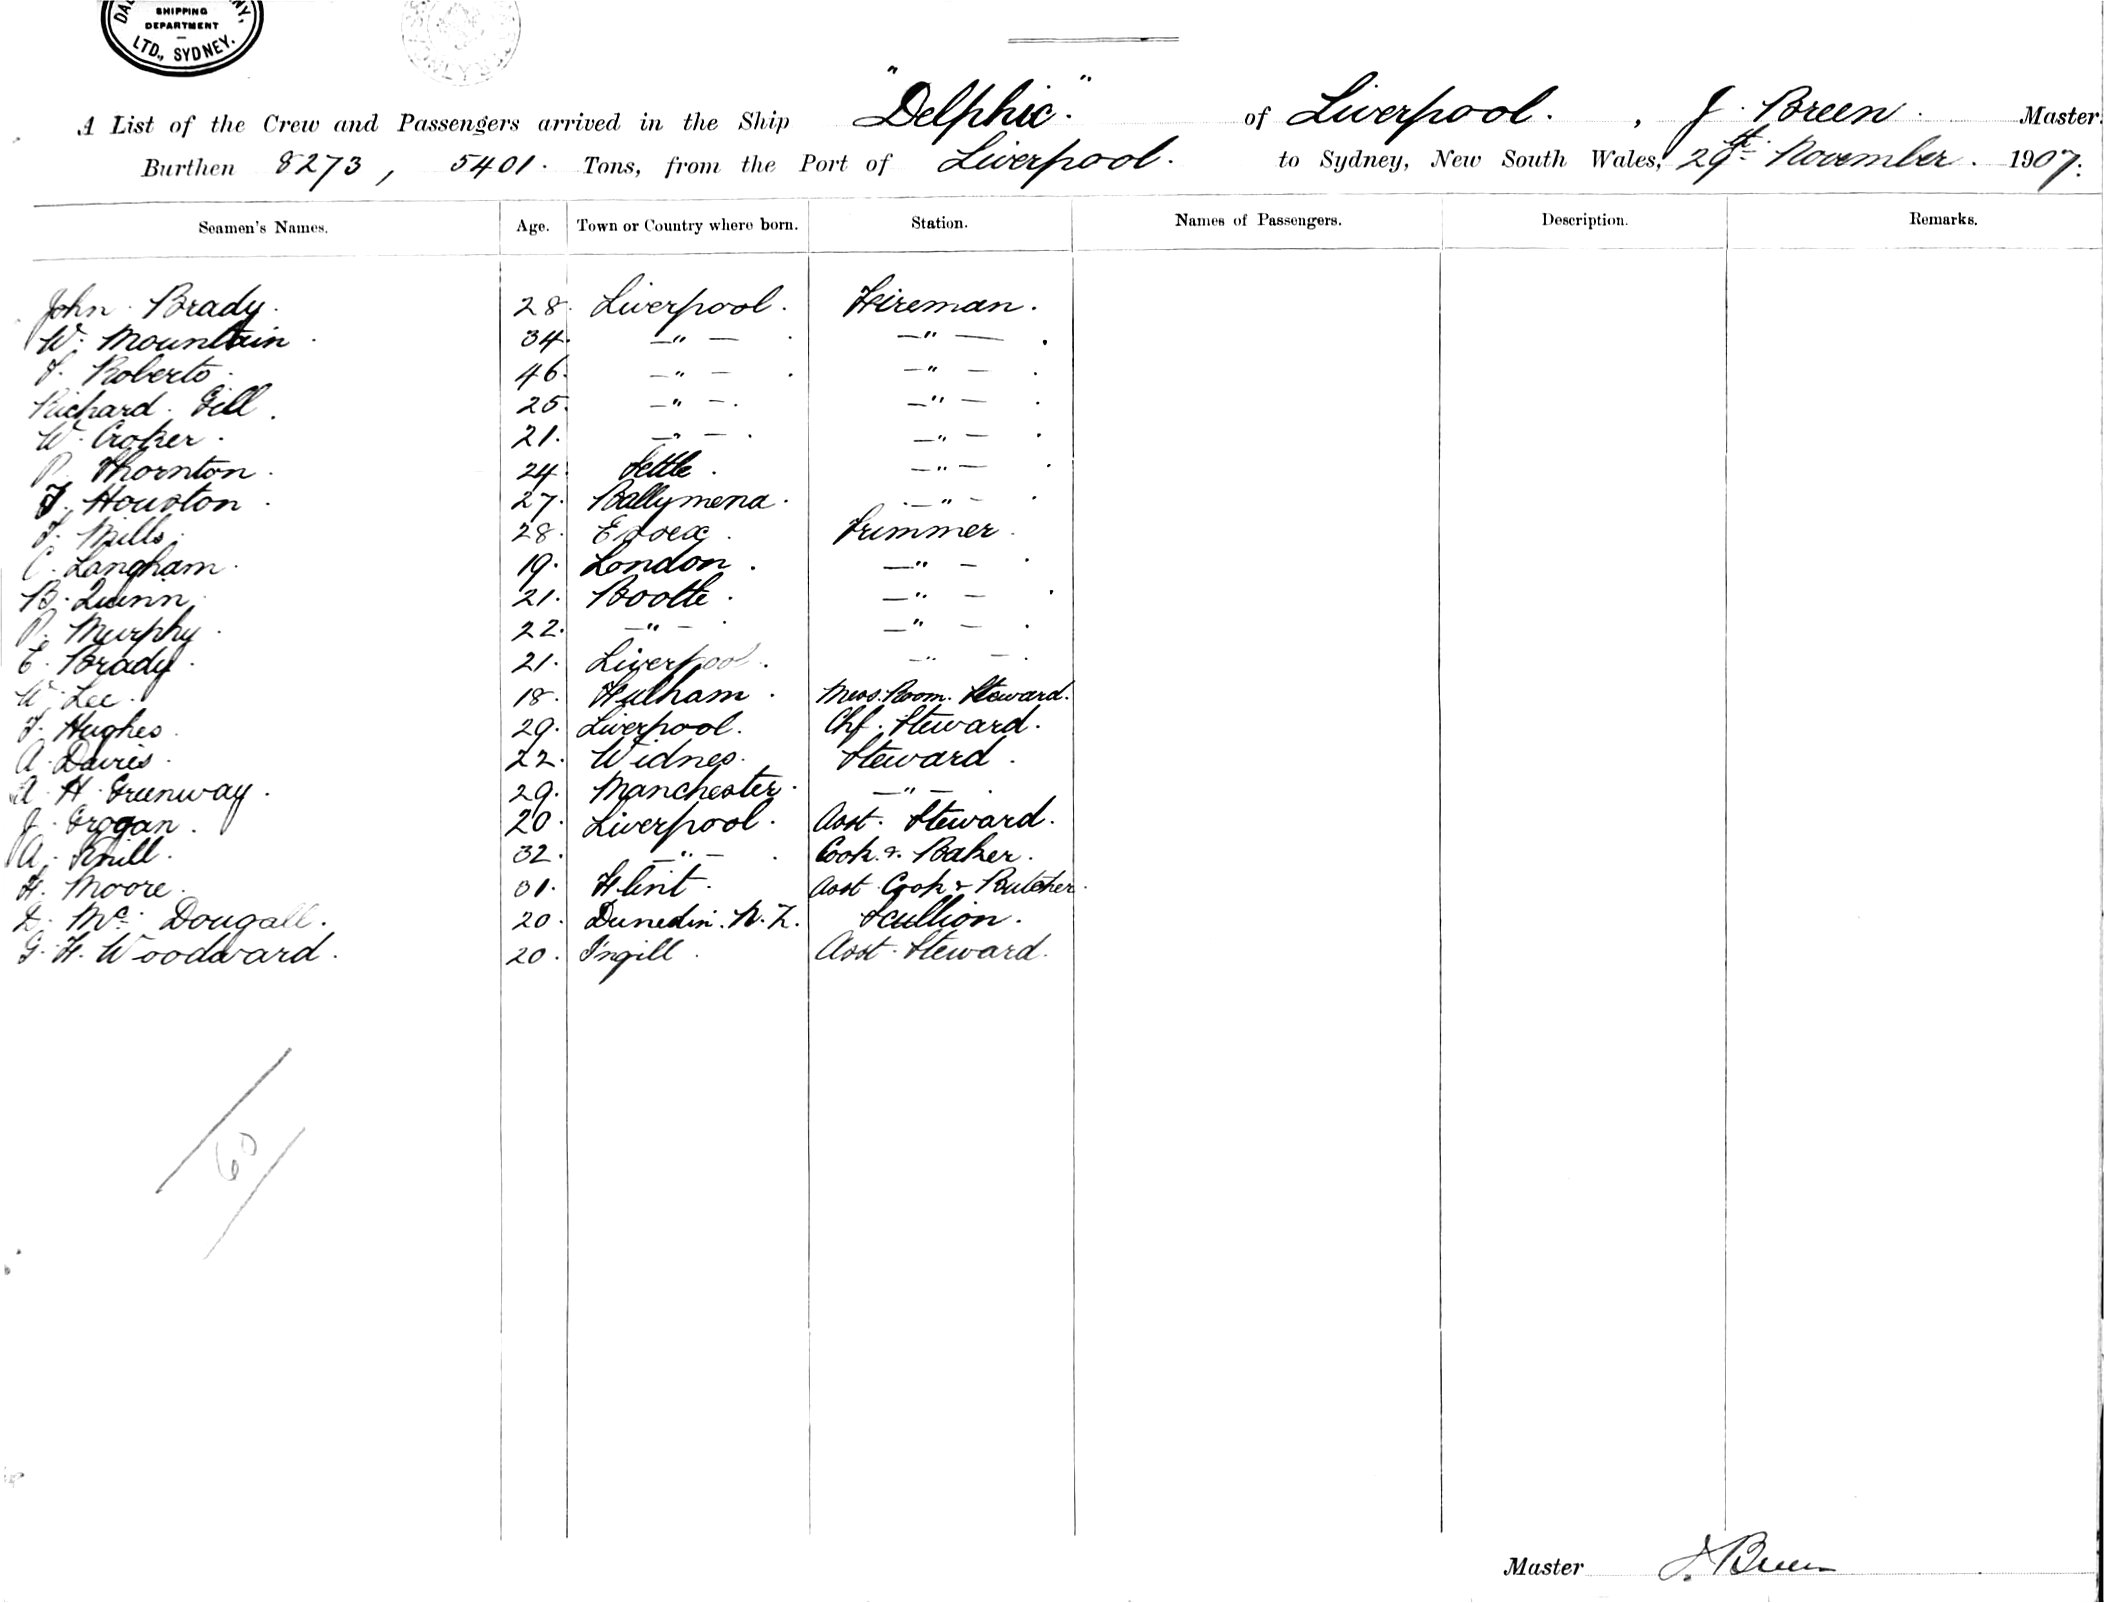 SHIPPING
DEPARTMENT
LTD., SYDNEY.
A List of the Crew and Passengers arrived in the Ship "Delphic." of Liverpool. , J. Breen. Master.
Burthen 8273, 5401. Tons, from the Port of Liverpool. to Sydney, New South Wales, 29th November. 1907.
Seamen's Names. Age. Town or Country where born. Station. Names of Passengers. Description. Remarks.
John Brady. 28. Liverpool. Fireman.
W. Mountain. 34. —"— . —"— .
Roberts. 46. —"— . —"— .
Richard Gill. 25. —"— . —"— .
W. Croker. 21. —"— . —"— .
P. Thornton. 24. Settle. —"— .
Houston. 27. Ballymena. —"— .
Mills. 28. Essex. Trimmer.
C. Langham. 19. London. —"— .
B. Quinn. 21. Bootle. —"— .
P. Murphy. 22. —"— . —"— .
E. Brady. 21. Liverpool. —"— .
W. Lee. 18. Fulham. Mess. Room. Steward.
Hughes. 29. Liverpool. Chf. Steward.
A. Davies. 22. Widnes. Steward.
A. H. Greenway. 29. Manchester. —"— .
J. Grogan. 20. Liverpool. Asst. Steward.
A. Knill. 32. —"— . Cook. & Baker.
H. Moore. 31. Flint. Asst Cook & Butcher.
Mc. Dougall. 20. Dunedin. N.Z. Scullion.
G. H. Woodward. 20. Asst. Steward.
60
Master J. Breen